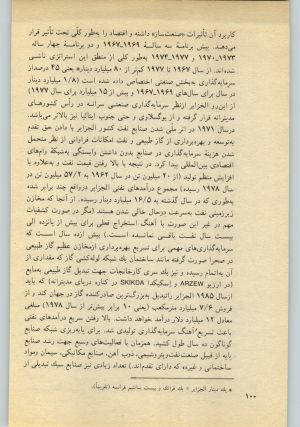 کاربرد آن تأثیرات «صنعت‌ساز» داشته و اقتصاد را به‌طور کلّی تحت تأثیر قرار
می‌دهند. پیش برنامهٔ سه سالهٔ ۱۹۶۹ـ۱۹۶۷ و دو برنامهٔ چهار ساله
۱۹۷۳ـ۱۹۷۰ و ۱۹۷۷ـ۱۹۷۴ به‌طور کلی از منطق این استراتژی ناشی
شده‌اند. از سال ۱۹۶۷ تا ۱۹۷۷ کم‌تر از ۸۰ میلیارد دینار* یعنی ۴۵ درصد از
سرمایه‌گذاری به‌بخش صنعتی اختصاص داده شده است (۱/۸ میلیارد دینار
در سال برای سال‌های ۱۹۶۹ـ۱۹۶۷ و بیش از ۱۵ میلیارد برای سال ۱۹۷۷)
از این‌رو الجزایر ازنظر سرمایه‌گذاری صنعتی سرانه در رأس کشورهای
مدیترانه قرار گرفته و از یوگسلاوی و حتی جنوب ایتالیا نیز بالاتر می‌باشد.
درسال ۱۹۷۱ در اثر ملی شدن صنایع نفت کشور الجزایر با دادن حق تقدم
به‌توسعه و بهره‌برداری از گاز طبیعی و نفت امکانات فراوانی از نظر متحمل
شدن هزینهٔ سرمایه‌گذاری در صنایع بدون داشتن وابستگی به‌شبکهٔ وام‌های
اقتصادی بین‌المللی پیدا کرد. در نتیجه با بالا رفتن قیمت نفت و به‌علاوه با
افزایش منظم تولید (از ۲۰ میلیون تن در سال ۱۹۶۲ به ۵۷/۲ میلیون تن در
سال ۱۹۷۸ رسیده) مجموع درآمدهای نفتی الجزایر درواقع چند برابر شده
به‌طوری که در سال گذشته به ۱۶/۵ میلیارد دینار رسیده. از آنجا که مخازن
زیرزمینی نفت به‌سرعت درحال خالی شدن هستند (مگر در صورت کشفیات
مهم در غیر این صورت با آهنگ استخراج فعلی برای بیش از پانزده الی
بیست سال نفت باقی نمانده است.) بیش ازده سال است که
سرمایه‌گذاری‌های مهمی برای تسریع بهره‌برداری ازمخازن عظیم گاز طبیعی
در صحرا صورت گرفته مانند ساختمان یك شبکه لوله‌کشی گاز که مقداری از
آن به‌اتمام رسیده و نیز یك سری کارخانجات جهت تبدیل گاز طبیعی به‌مایع
(در ارزیو ARZEW و اسکیکدا SKIKDA در کناره دریای مدیترانه) که باید
ازسال ۱۹۸۵ الجزایر راتبدیل به‌بزرگ‌ترین صادرکننده گاز در جهان کند و از
فروش ۷/۶ میلیارد مترمکعب (یعنی ۱۰ برابر بیش‌تر از سال ۱۹۷۸) مبلغی
معادل ۱۲ میلیارد دلار درآمد خواهد داشت. بالا رفتن سریع درآمدهای نفتی
باعث تسریع آهنگ سرمایه‌گذاری تولیدی شد. برای پایه‌ریزی شبکه صنایع
گوناگون ده سال طول کشید. همزمان با فعالیت‌های وسیع جهت رشد صنایع
پایه از قبیل صنعت نفت‌وپتروشیمی، ذوب آهن، صنایع مکانیکی، سیمان ومواد
ساختمانی و غیره (که دارای تقدم‌اند.) تعداد زیادی نیز صنایع سبك تبدیلی از
* یك دینار الجزایر = یك فرانك و بیست سانتیم فرانسه (تقریباً).
۱۰۰